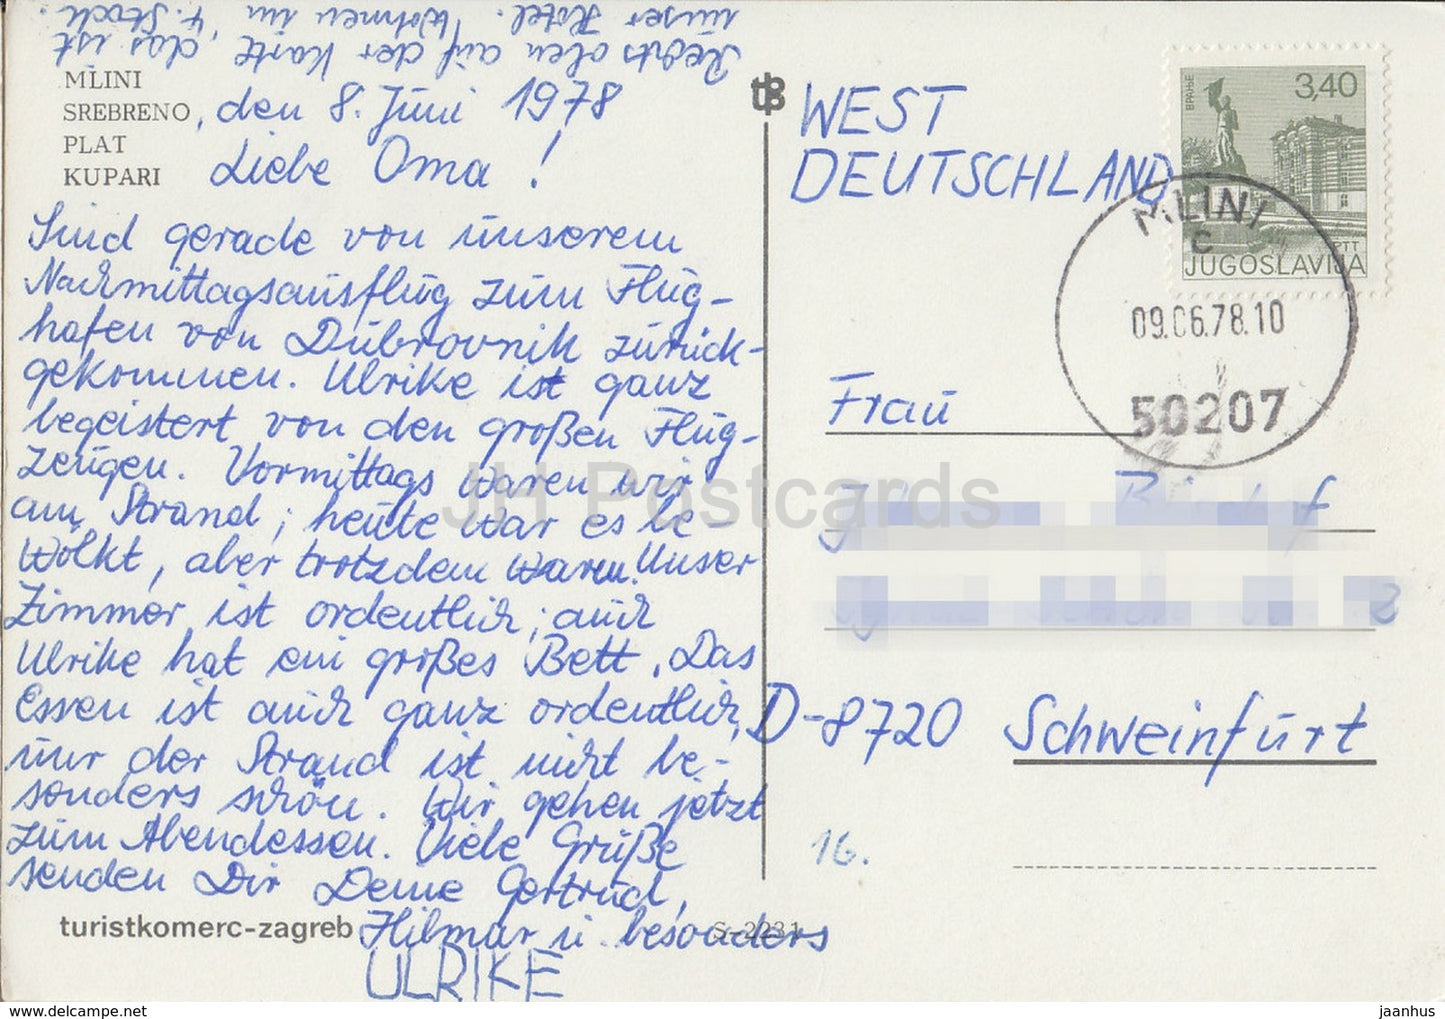 Rechts oben auf der Karte, das ist
unser Hotel. Wohnen im 4. Stock.
MLINI
SREBRENO
PLAT
KUPARI
, den 8. Juni 1978
Liebe Oma!
Sind gerade von unserem
Nachmittagsausflug zum Flug-
hafen von Dubrovnik zurück-
gekommen. Ulrike ist ganz
begeistert von den großen Flug-
zeugen. Vormittags waren wir
am Strand; heute war es be-
wölkt, aber trotzdem warm. Unser
Zimmer ist ordentlich; auch
Ulrike hat ein großes Bett. Das
Essen ist auch ganz ordentlich,
nur der Strand ist nicht be-
sonders schön. Wir gehen jetzt
zum Abendessen. Viele Grüße
senden Dir Deine Gertrud,
Hilmar u. besonders
ULRIKE
turistkomerc-zagreb
S-2231
WEST
DEUTSCHLAND
ВРАЊЕ
3,40
PTT
JUGOSLAVIJA
MLINI
C
09.06.78.10
50207
Frau
D-8720 Schweinfurt
16.
JH Postcards
www.delcampe.net
jaanhus